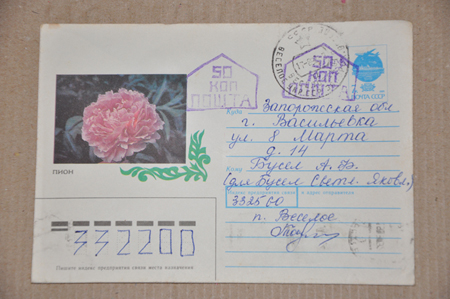 50
КОП
ПОШТА
50
КОП
ПОШТА
ПОЧТА СССР
Куда Запорожская обл
г. Васильевка
ул. 8 Марта
д. 14
Кому Бусел А.
(для Бусел Свете Яковл.)
Индекс предприятия связи и адрес отправителя
332560
п. Веселое
ПИОН
332200
Пишите индекс предприятия связи места назначения